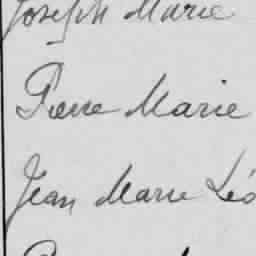 Joseph Marie
Pierre Marie
Jean Marie Léo